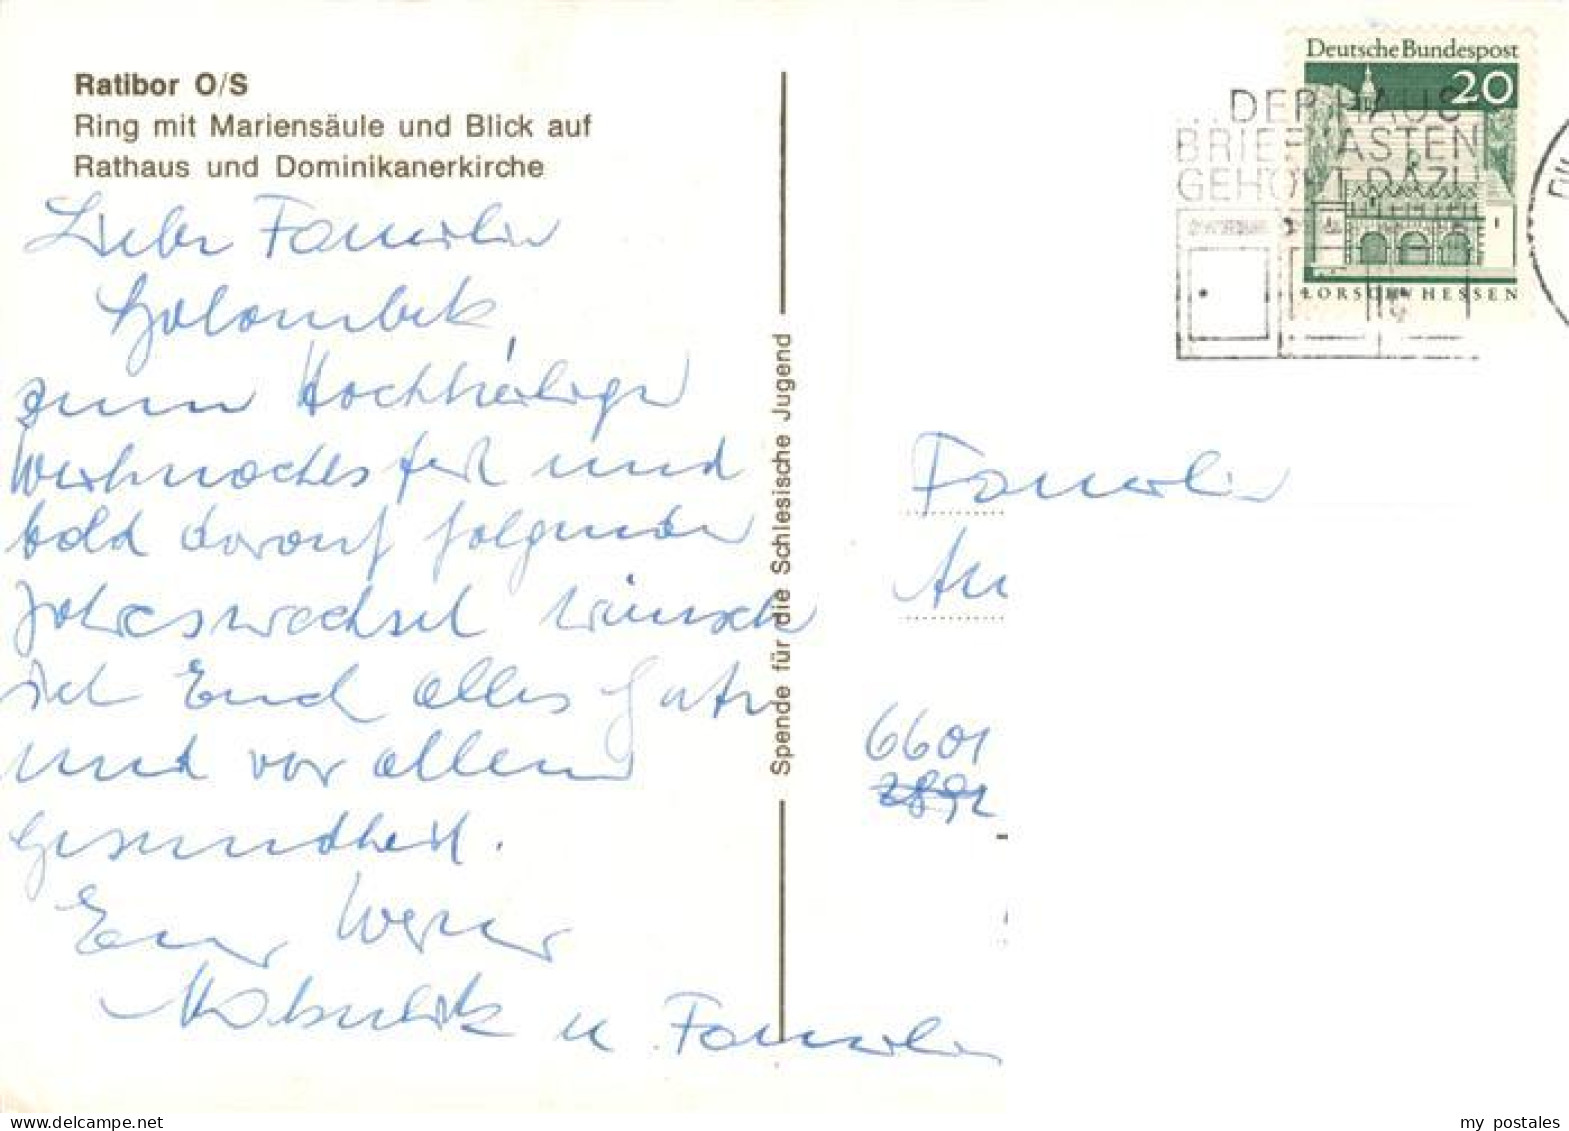 Ratibor O/S
Ring mit Mariensäule und Blick auf
Rathaus und Dominikanerkirche
Liebe Familie
Golombek,
zum Hochheiligen
Weihnachtsfest und
bald darauf folgenden
Jahreswechsel wünsch
ich Euch alles Gute
und vor allem
Gesundheit.
Euer Werner
u. Familie
Spende für die Schlesische Jugend
Deutsche Bundespost
20
LORSCH/HESSEN
...DER HAUS
BRIEFKASTEN
GEHÖRT DAZU
Familie
An
6601
2892
my postales